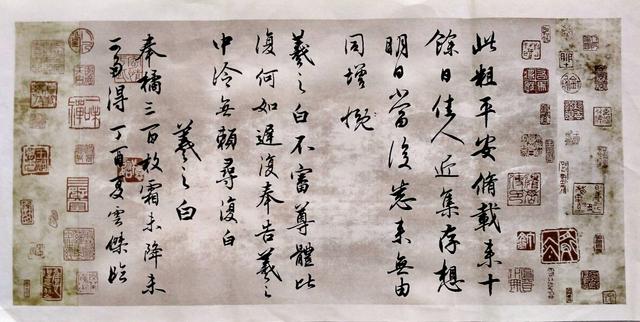 此粗平安脩載来十
餘日佳人近集存想
明日當復悉来無由
同增慨
羲之白不審尊體比
復何如遲復奉告羲之
中冷無賴尋復白
羲之白
奉橘三百枚霜未降未
可多得丁酉夏雲傑臨